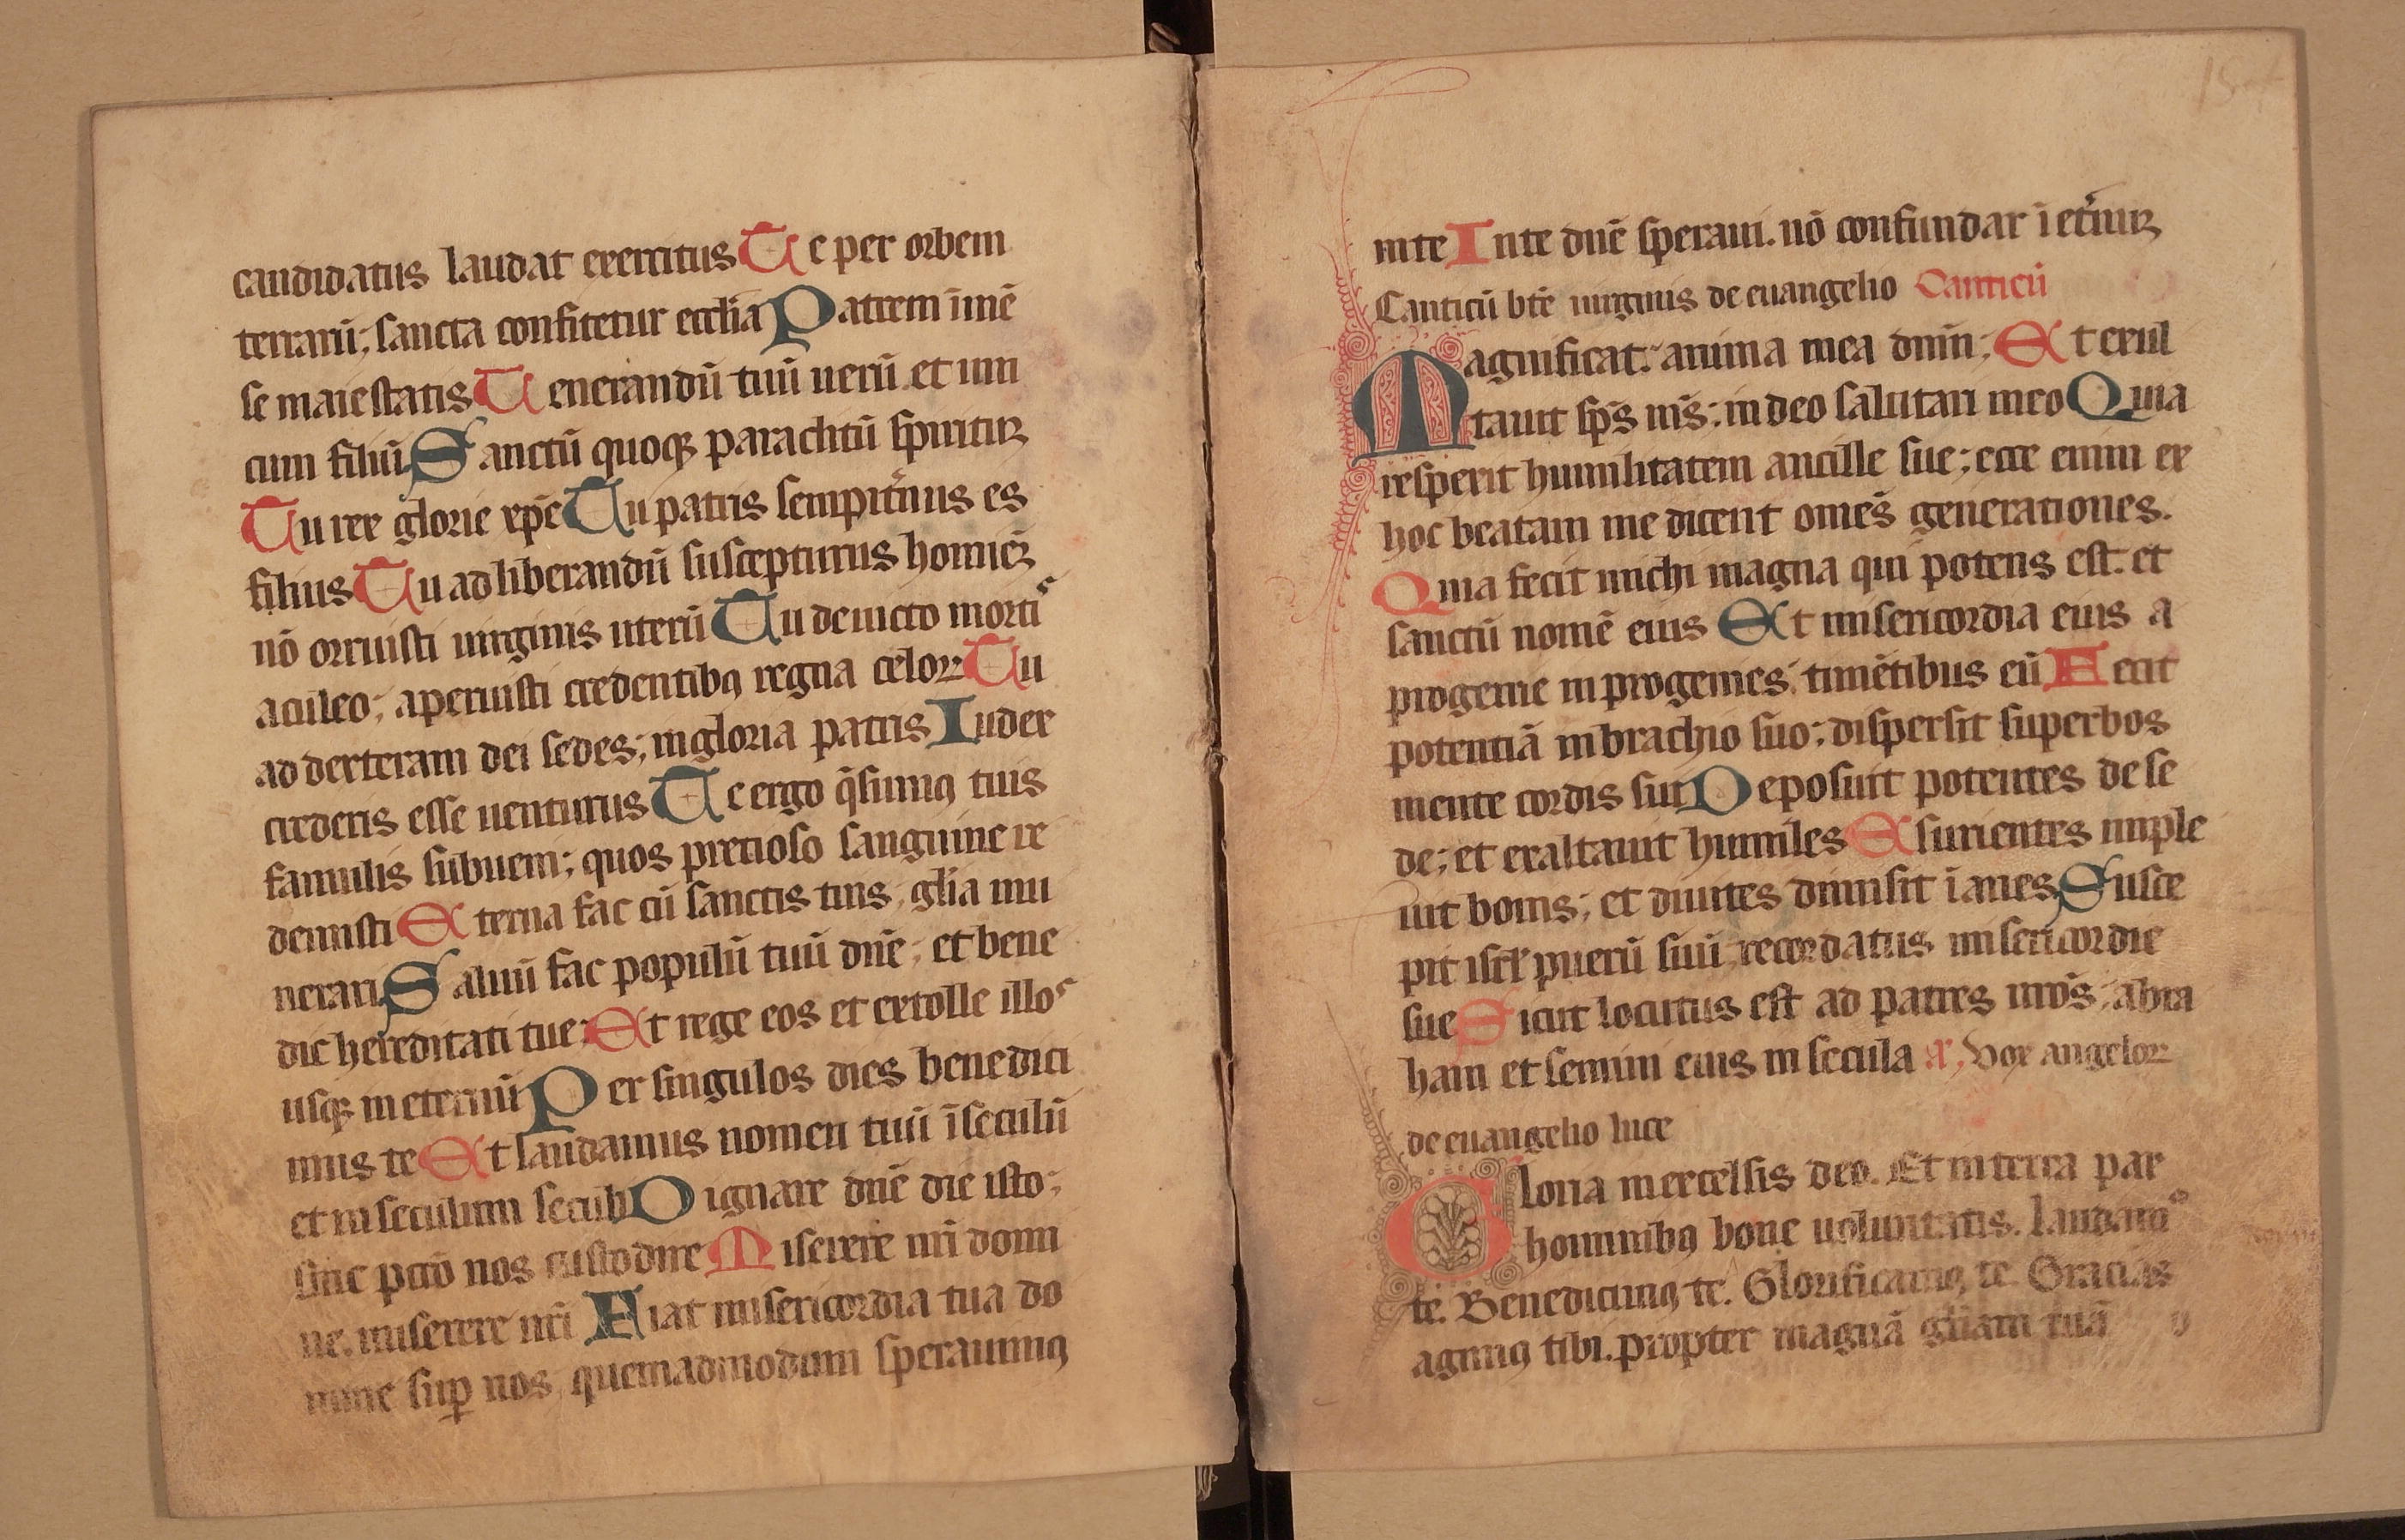 candidatus laudat exercitus Te per orbem
terrarū; sancta confitetur eccl̄ia Patrem īmē
se maiestatis Uenerandū tuū uerū et uni
cum filiū Sanctū quoqꝫ paraclitū spiritūꝫ
Tu rex glorie xp̄e Tu patris sempit̄nus es
filius Tu ad liberandū suscepturus homiēꝫ
nō orruisti uirginis uterū Tu deuicto mortis
aculeo; aperuisti credentibꝰ regna celoꝝ Tu
ad dexteram dei sedes; in gloria patris Iudex
crederis esse uenturus Te ergo q̄sumꝰ tuis
famulis subueni; quos precioso sanguine re
demisti Eterna fac cū sanctis tuis, gl̄ia mu
nerari Saluū fac populū tuū dn̄e; et bene
dic hereditati tue; Et rege eos et extolle illos
usqꝫ in eternū Per singulos dies benedici
mus te Et laudamus nomen tuū ī seculū
et in seculum secul̄i Dignare dn̄e die isto;
sine pctō nos custodire Miserere nr̄i domi
ne. miserere nr̄i Fiat misericordia tua do
mine suꝑ nos, quemadmodum sperauimꝰ
in te In te dn̄e speraui. nō confundar ī et̄nuꝫ
Canticū bt̄e uirginis de euangelio Canticū
Magnificat: anima mea dnm̄; Et exul
tauit sp̄s ms̄; in deo salutari meo Quia
respexit humilitatem ancille sue; ecce enim ex
hoc beatam me dicent omēs generationes.
Quia fecit michi magna qui potens est: et
sanctū nomē eius Et misericordia eius a
progenie in progenies; timētibus eū Fecit
potentiā in brachio suo; dispersit superbos
mente cordis sui Deposuit potentes de se
de; et exaltauit humiles Esurientes imple
uit bonis; et diuites dimisit ī anes, Susce
pit isrl̄ puerū suū, recordatus misericordie
sue Sicut locutus est ad patres nrōs; abra
ham et semini eius in secula Vox angeloꝝ
de euangelio luce
Gloria in excelsis deo. Et in terra pax
hominibꝰ bone uoluntatis. Laudamꝰ
te. Benedicimꝰ te. Glorificamꝰ te. Gracias
agimꝰ tibi. propter magnā gl̄iam tuā